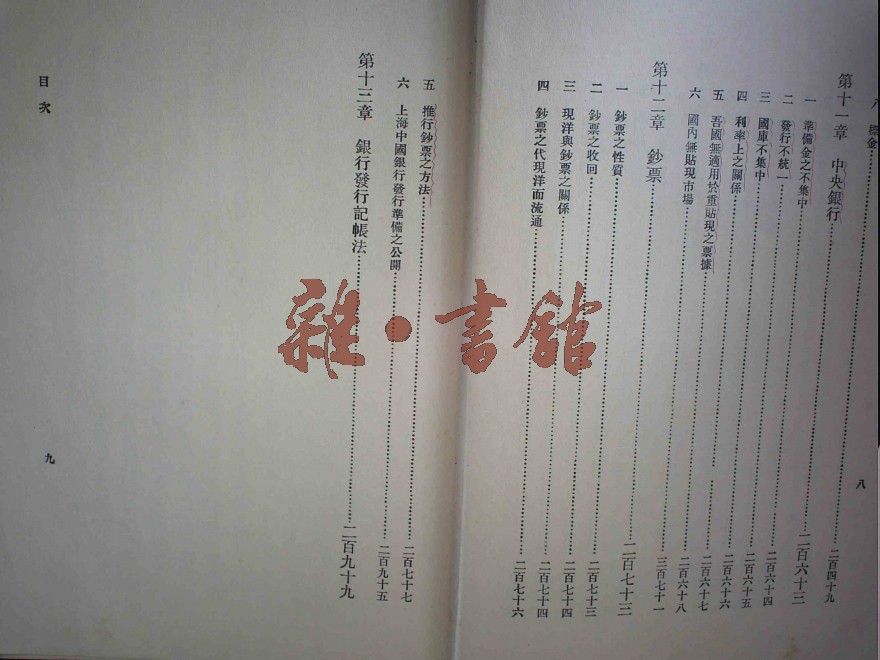 八 標金 二百四十九
第十一章 中央銀行 二百六十三
一 準備金之不集中 二百六十四
二 發行不統一 二百六十五
三 國庫不集中 二百六十六
四 利率上之關係 二百六十七
五 吾國無適用於重貼現之票據 二百六十八
六 國內無貼現市場 三百七十一
第十二章 鈔票 二百七十三
一 鈔票之性質 二百七十三
二 鈔票之收回 二百七十四
三 現洋與鈔票之關係 二百七十四
四 鈔票之代現洋而流通 二百七十六
八
五 推行鈔票之方法 二百七十七
六 上海中國銀行發行準備之公開 二百九十五
第十三章 銀行發行記帳法 二百九十九
目次
九
雜·書館